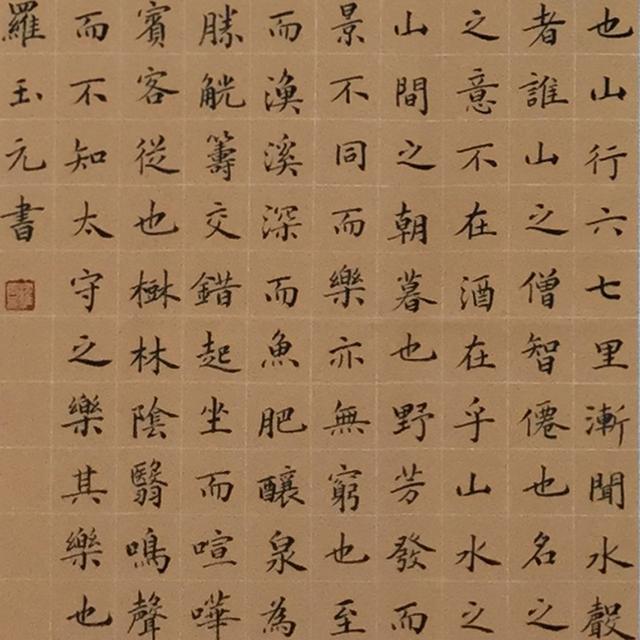 也山行六七里漸聞水聲
者誰山之僧智僊也名之
之意不在酒在乎山水之
山間之朝暮也野芳發而
景不同而樂亦無窮也至
而漁溪深而魚肥釀泉為
勝觥籌交錯起坐而喧嘩
賓客從也樹林陰翳鳴聲
而不知太守之樂其樂也
羅玉元書